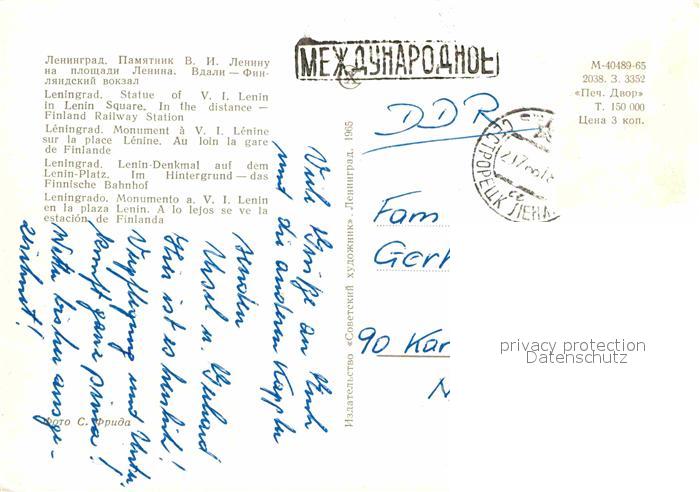 Ленинград. Памятник В. И. Ленину
на площади Ленина. Вдали — Фин-
ляндский вокзал
Leningrad. Statue of V. I. Lenin
in Lenin Square. In the distance —
Finland Railway Station
Léningrad. Monument à V. I. Lénine
sur la place Lénine. Au loin la gare
de Finlande
Leningrad. Lenin-Denkmal auf dem
Lenin-Platz. Im Hintergrund — das
Finnische Bahnhof
Leningrado. Monumento a V. I. Lenin
en la plaza Lenin. A lo lejos se ve la
estación de Finlandia
МЕЖДУНАРОДНОЕ
М-40489-65
2038. З. 3352
«Печ. Двор»
Т. 150 000
Цена 3 коп.
СЕСТРОРЕЦК ЛЕНА
DDR
Fam
Gerh
90 Kar
Издательство «Советский художник». Ленинград. 1965
Viele Grüße an Euch
und die anderen Kappler
senden
Ursel u. Gerhard
Hier ist es herrlich!
Verpflegung und Unter-
kunft ganz prima!
Wetter bisher ausge-
zeichnet!
Фото С. Фрида
privacy protection
Datenschutz